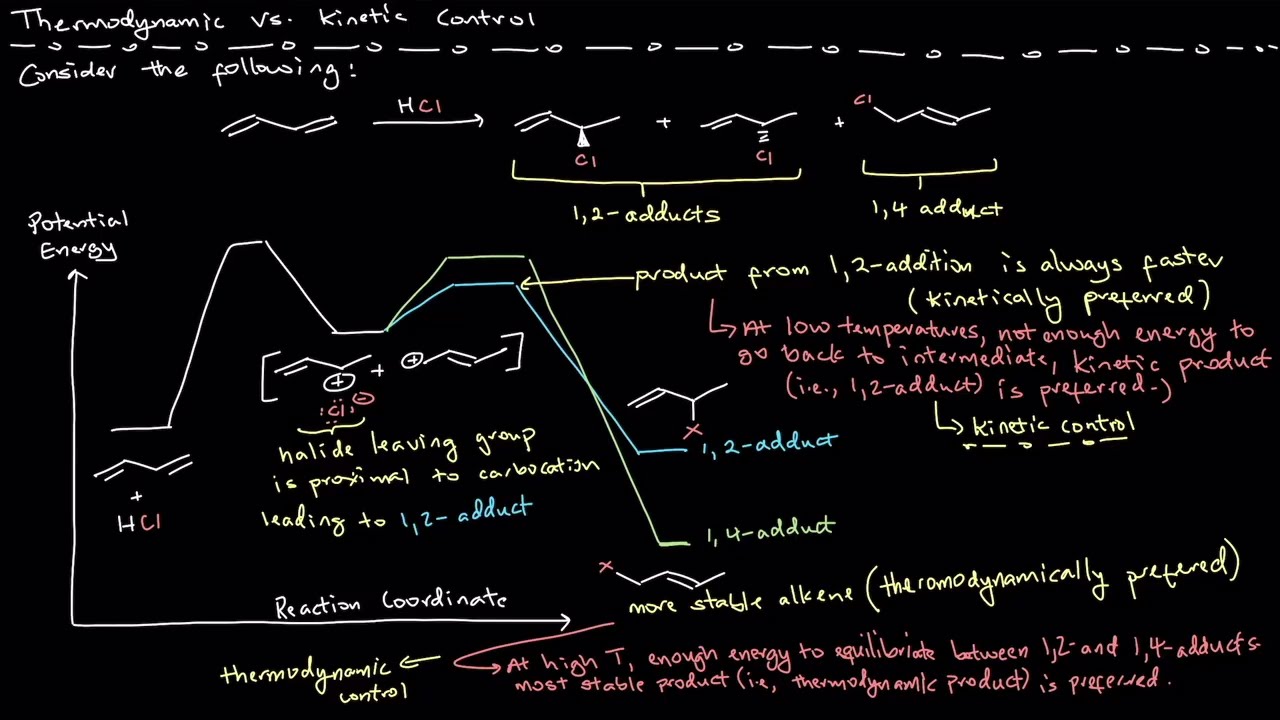 Thermodynamic vs. Kinetic Control
Consider the following:
HCl
+
+
Cl
Cl
Cl
1,2-adducts
1,4 adduct
Potential
Energy
product from 1,2-addition is always faster
(kinetically preferred)
At low temperatures, not enough energy to
go back to intermediate, kinetic product
(i.e., 1,2-adduct) is preferred.)
kinetic control
+
:Cl:
halide leaving group
is proximal to carbocation
leading to 1,2-adduct
+
HCl
X
1,2-adduct
1,4-adduct
X
more stable alkene (theromodynamically preferred)
Reaction Coordinate
thermodynamic
control
At high T, enough energy to equilibriate between 1,2- and 1,4-adducts
most stable product (i.e., thermodynamic product) is preferred.